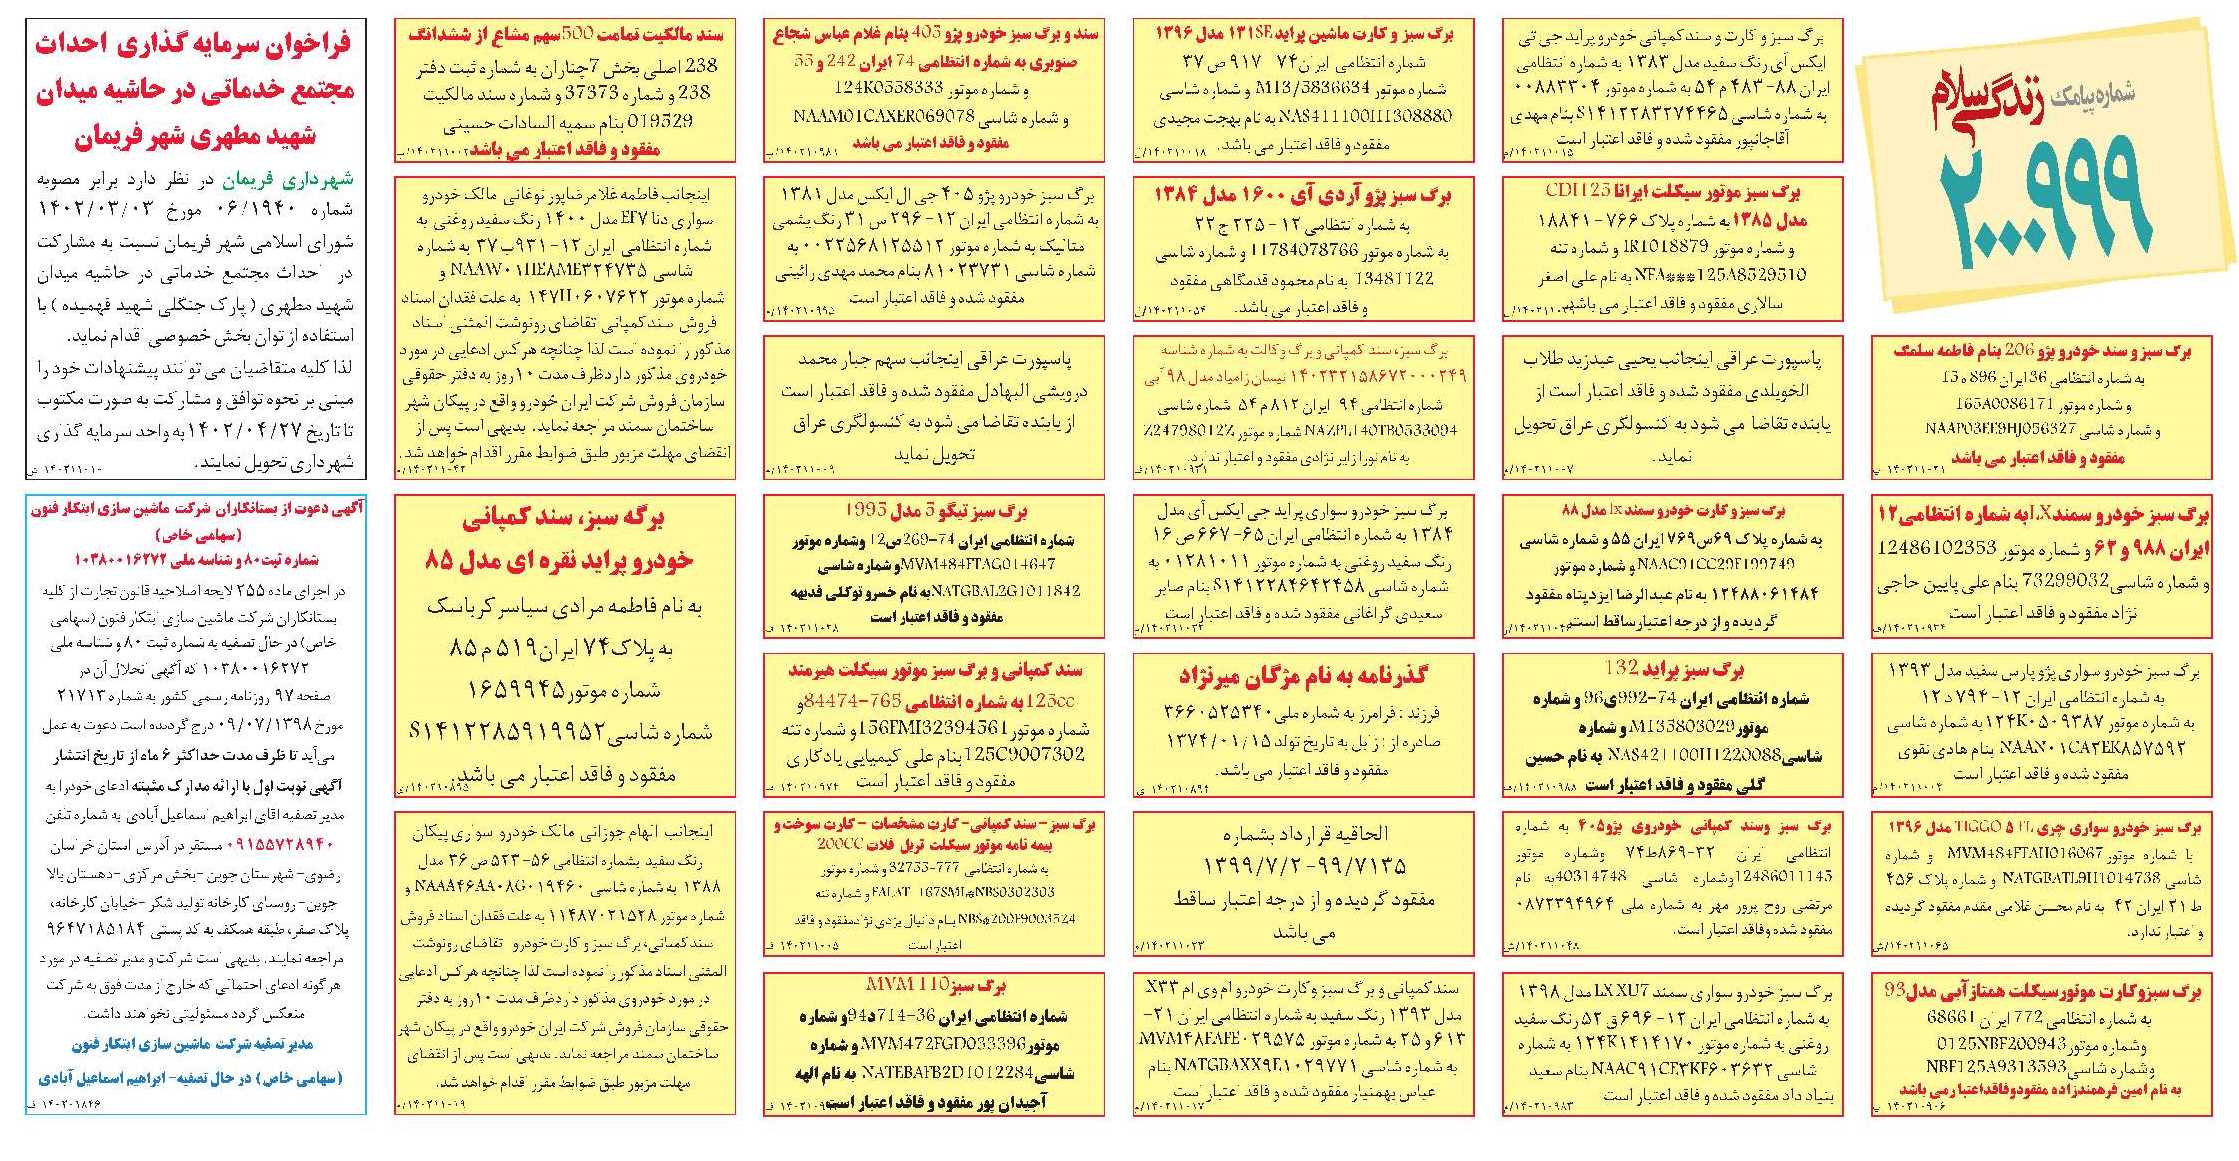 شماره پیامک
زندگی سلام
۲۰۰۰۹۹۹
برگ سبز و سند خودرو پژو 206 بنام فاطمه سلمک
به شماره انتظامی 36 ایران 896 ه 15
و شماره موتور 165A0086171
و شماره شاسی NAAP03EE9HJ056327
مفقود و فاقد اعتبار می باشد
۱۴۰۲۱۱۰۲۱ ب
برگ سبز خودرو سمندLX به شماره انتظامی۱۲
ایران ۹۸۸ و ۶۲ و شماره موتور 12486102353
و شماره شاسی73299032 بنام علی پایین حاجی
نژاد مفقود و فاقد اعتبار است
۱۴۰۲۱۰۹۲۴/ف
برگ سبز خودرو سواری پژو پارس سفید مدل ۱۳۹۳
به شماره انتظامی ایران ۱۲- ۷۹۴ د ۱۲
به شماره موتور ۱۲۴K۰۵۰۹۳۸۷ به شماره شاسی
NAAN۰۱CA۲EK۸۵۷۵۹۲ بنام هادی نقوی
مفقود شده و فاقد اعتبار است
۱۴۰۲۱۱۰۰۴/م
برگ سبز خودرو سواری چری TIGGO ۵ FL مدل ۱۳۹۶
با شماره موتور MVM484FTAH016067 و شماره
شاسی NATGBATL9H1014738 و شماره پلاک ۴۵۶
ط ۲۱ ایران ۴۲ به نام محسن غلامی مقدم مفقود گردیده
و اعتبار ندارد.
۱۴۰۲۱۱۰۶۵/ش
برگ سبزوکارت موتورسیکلت همتازآبی مدل93
به شماره انتظامی 772 ایران 68661
وشماره موتور0125NBF200943
وشماره شاسیNBF125A9313593
به نام امین فرهمندزاده مفقودوفاقداعتبارمی باشد
۱۴۰۲۱۰۹۰۶ ب
برگ سبز و کارت و سند کمپانی خودرو پراید جی تی
ایکس آی رنگ سفید مدل ۱۳۸۳ به شماره انتظامی
ایران ۸۸- ۴۸۳ م ۵۴ به شماره موتور ۰۰۸۸۳۳۰۴
به شماره شاسی S۱۴۱۲۲۸۳۲۷۴۴۶۵ بنام مهدی
آقاجانپور مفقود شده و فاقد اعتبار است
۱۴۰۲۱۱۰۱۵/م
برگ سبز موتور سیکلت ایرانا CDI125
مدل ۱۳۸۵ به شماره پلاک ۷۶۶- ۱۸۸۴۱
و شماره موتور IR1018879 و شماره تنه
NFA***125A8529510 به نام علی اصغر
سالاری مفقود و فاقد اعتبار می باشد.
۱۴۰۲۱۱۰۳۹/ل
پاسپورت عراقی اینجانب یحیی عبدزید طلاب
الخویلدی مفقود شده و فاقد اعتبار است از
یابنده تقاضا می شود به کنسولگری عراق تحویل
نماید.
۱۴۰۲۱۱۰۰۷/م
برگ سبز و کارت خودرو سمند lx مدل ۸۸
به شماره پلاک ۶۹س۷۶۹ ایران ۵۵ و شماره شاسی
NAAC91CC29F199749 و شماره موتور
۱۲۴۸۸۰۶۱۴۸۴ به نام عبدالرضا ایزدپناه مفقود
گردیده و از درجه اعتبارساقط است
برگ سبز پراید 132
شماره انتظامی ایران 74-992ی96 و شماره
موتورM135803029 و شماره
شاسیNAS421100H1220088 به نام حسین
گلی مفقود و فاقد اعتبار است
۱۴۰۲۱۰۹۸۸/ف
برگ سبز وسند کمپانی خودروی پژو۴۰۵ به شماره
انتظامی ایران ۳۲-۸۶۹ط۷۴ وشماره موتور
12486011143وشماره شاسی 40314748به نام
مرتضی روح پرور مهر به شماره ملی ۰۸۷۲۳۹۴۹۶۴
مفقود شده وفاقد اعتبار است.
۱۴۰۲۱۱۰۴۸/ش
برگ سبز خودرو سواری سمند LX XU7 مدل ۱۳۹۸
به شماره انتظامی ایران ۱۲- ۶۹۶ ق ۵۲ رنگ سفید
روغنی به شماره موتور ۱۲۴K۱۴۱۴۱۷۰ به شماره
شاسی NAAC۹۱CE۳KF۶۰۳۶۳۲ بنام سعید
بنیاد داد مفقود شده و فاقد اعتبار است
۱۴۰۲۱۰۹۸۳/م
برگ سبز و کارت ماشین پراید ۱۳۱SE مدل ۱۳۹۶
شماره انتظامی ایران۷۴ ۹۱۷ ص ۳۷
شماره موتور M13/5836634 و شماره شاسی
NAS411100H1308880 به نام بهجت مجیدی
مفقود و فاقد اعتبار می باشد.
۱۴۰۲۱۱۰۱۸/ل
برگ سبز پژو آردی آی ۱۶۰۰ مدل ۱۳۸۴
به شماره انتظامی ۱۲- ۲۲۵ ج ۲۲
به شماره موتور 11784078766 و شماره شاسی
13481122 به نام محمود قدمگاهی مفقود
و فاقد اعتبار می باشد.
۱۴۰۲۱۱۰۵۴/ل
برگ سبز، سند کمپانی و برگ وکالت به شماره شناسه
۱۴۰۲۳۲۱۵۸۶۷۲۰۰۰۲۴۹ نیسان زامیاد مدل ۹۸ آبی
شماره انتظامی ۹۴ ایران ۸۱۲ م ۵۴ شماره شاسی
NAZPL140TB0533094 شماره موتور Z24798012Z
به نام نورا زایر نژادی مفقود و اعتبار ندارد.
۱۴۰۲۱۰۹۳۱/ف
برگ سبز خودرو سواری پراید جی ایکس آی مدل
۱۳۸۴ به شماره انتظامی ایران ۶۵- ۶۶۷ ص ۱۶
رنگ سفید روغنی به شماره موتور ۰۱۲۸۱۰۱۱ به
شماره شاسی S۱۴۱۲۲۸۴۶۴۲۴۵۸ بنام صابر
سعیدی گراغانی مفقود شده و فاقد اعتبار است
گذرنامه به نام مژگان میرنژاد
فرزند : فرامرز به شماره ملی ۳۶۶۰۵۲۵۳۴۰
صادره از : زابل به تاریخ تولد ۱۳۷۴/۰۱/۱۵
مفقود و فاقد اعتبار می باشد.
۱۴۰۲۱۰۸۹۴ ی
الحاقیه قرارداد بشماره
۱۳۹۹/۷/۲-۹۹/۷۱۳۵
مفقود گردیده و از درجه اعتبار ساقط
می باشد
۱۴۰۲۱۱۰۲۳/م
سند کمپانی و برگ سبز و کارت خودرو ام وی ام X۳۳
مدل ۱۳۹۳ رنگ سفید به شماره انتظامی ایران ۲۱-
۶۱۳ و ۲۵ به شماره موتور MVM۴۸FAFE۰۲۹۵۷۵
به شماره شاسی NATGBAXX۹E۱۰۲۹۷۷۱ بنام
عباس بهمنیار مفقود شده و فاقد اعتبار است
۱۴۰۲۱۱۰۱۷/م
سند و برگ سبز خودرو پژو 405 بنام غلام عباس شجاع
صنوبری به شماره انتظامی 74 ایران 242 و 55
و شماره موتور 124K0558333
و شماره شاسی NAAM01CAXER069078
مفقود و فاقد اعتبار می باشد
۱۴۰۲۱۰۹۸۱/ب
برگ سبز خودرو پژو ۴۰۵ جی ال ایکس مدل ۱۳۸۱
به شماره انتظامی ایران ۱۲- ۲۹۶ س ۳۱ رنگ یشمی
متالیک به شماره موتور ۰۰۲۲۵۶۸۱۲۵۵۱۲ به
شماره شاسی ۸۱۰۲۳۷۳۱ بنام محمد مهدی رائینی
مفقود شده و فاقد اعتبار است
۱۴۰۲۱۰۹۹۵/م
پاسپورت عراقی اینجانب سهم جبار محمد
درویشی البهادل مفقود شده و فاقد اعتبار است
از یابنده تقاضا می شود به کنسولگری عراق
تحویل نماید
۱۴۰۲۱۱۰۰۹/م
برگ سبز تیگو 5 مدل 1995
شماره انتظامی ایران 74-269ص12 وشماره موتور
MVM484FTAG014647وشماره شاسی
NATGBAL2G1011842به نام خسرو توکلی فدیهه
مفقود و فاقد اعتبار است
۱۴۰۲۱۱۰۲۸ ف
سند کمپانی و برگ سبز موتور سیکلت هیرمند
125ccبه شماره انتظامی 765-84474و
شماره موتور156FMI32394561و شماره تنه
125C9007302بنام علی کیمیایی یادگاری
مفقود و فاقد اعتبار است
۱۴۰۲۱۰۹۷۴ ف
برگ سبز-سند کمپانی-کارت مشخصات -کارت سوخت و
بیمه نامه موتور سیکلت تریل فلات 200CC
به شماره انتظامی 777-32733و شماره موتور
FALAT 167SML*NBS0302303و شماره تنه
NBS*200F9003524 بنام دانیال یزدی نژادمفقود و فاقد
اعتبار است
۱۴۰۲۱۱۰۰۵ ف
برگ سبزMVM 110
شماره انتظامی ایران 36-714د94و شماره
موتورMVM472FGD033396 و شماره
شاسیNATEBAFB2D1012284 به نام الهه
آجیدان پور مفقود و فاقد اعتبار است
سند مالکیت تمامت 500سهم مشاع از ششدانگ
238 اصلی بخش 7چناران به شماره ثبت دفتر
238 و شماره 37373 و شماره سند مالکیت
019529 بنام سمیه السادات حسینی
مفقود و فاقد اعتبار می باشد
۱۴۰۲۱۱۰۰۲/ب
اینجانب فاطمه غلامرضاپور نوغانی مالک خودرو
سواری دنا EF۷ مدل ۱۴۰۰ رنگ سفید روغنی به
شماره انتظامی ایران ۱۲-۹۳۱ب ۳۷ به شماره
شاسی NAAW۰۱HE۸ME۳۲۴۷۳۵ و
شماره موتور ۱۴۷H۰۶۰۷۶۲۲ به علت فقدان اسناد
فروش سند کمپانی تقاضای رونوشت المثنی اسناد
مذکور را نموده است لذا چنانچه هر کس ادعایی در مورد
خودروی مذکور دارد ظرف مدت ۱۰ روز به دفتر حقوقی
سازمان فروش شرکت ایران خودرو واقع در پیکان شهر
ساختمان سمند مراجعه نماید. بدیهی است پس از
انقضای مهلت مزبور طبق ضوابط مقرر اقدام خواهد شد.
۱۴۰۲۱۱۰۴۲/م
برگه سبز، سند کمپانی
خودرو پراید نقره ای مدل ۸۵
به نام فاطمه مرادی سیاسر کرباسک
به پلاک ۷۴ ایران ۵۱۹ م ۸۵
شماره موتور ۱۶۵۹۹۴۵
شماره شاسی S۱۴۱۲۲۸۵۹۱۹۹۵۲
مفقود و فاقد اعتبار می باشد.
۱۴۰۲۱۰۸۹۵/ی
اینجانب الهام جوزانی مالک خودرو سواری پیکان
رنگ سفید بشماره انتظامی ۵۶- ۵۲۳ ص ۳۶ مدل
۱۳۸۸ به شماره شاسی NAAA۴۶AA۰۸G۰۱۹۴۶۰ و
شماره موتور ۱۱۴۸۷۰۲۱۵۲۸ به علت فقدان اسناد فروش
سند کمپانی، برگ سبز و کارت خودرو تقاضای رونوشت
المثنی اسناد مذکور را نموده است لذا چنانچه هر کس ادعایی
در مورد خودروی مذکور دارد ظرف مدت ۱۰ روز به دفتر
حقوقی سازمان فروش شرکت ایران خودرو واقع در پیکان شهر
ساختمان سمند مراجعه نماید. بدیهی است پس از انقضای
مهلت مزبور طبق ضوابط مقرر اقدام خواهد شد.
۱۴۰۲۱۱۰۱۹/م
فراخوان سرمایه گذاری احداث
مجتمع خدماتی در حاشیه میدان
شهید مطهری شهر فریمان
شهرداری فریمان در نظر دارد برابر مصوبه
شماره ۰۶/۱۹۴۰ مورخ ۱۴۰۲/۰۳/۰۳
شورای اسلامی شهر فریمان نسبت به مشارکت
در احداث مجتمع خدماتی در حاشیه میدان
شهید مطهری ( پارک جنگلی شهید فهمیده ) با
استفاده از توان بخش خصوصی اقدام نماید.
لذا کلیه متقاضیان می توانند پیشنهادات خود را
مبنی بر نحوه توافق و مشارکت به صورت مکتوب
تا تاریخ ۱۴۰۲/۰۴/۲۷ به واحد سرمایه گذاری
شهرداری تحویل نمایند.
۱۴۰۲۱۱۰۱۰ ض
آگهی دعوت از بستانکاران شرکت ماشین سازی ابتکار فنون
(سهامی خاص)
شماره ثبت۸۰ و شناسه ملی ۱۰۳۸۰۰۱۶۲۷۲
در اجرای ماده ۲۵۵ لایحه اصلاحیه قانون تجارت از کلیه
بستانکاران شرکت ماشین سازی ابتکار فنون (سهامی
خاص) در حال تصفیه به شماره ثبت ۸۰ و شناسه ملی
۱۰۳۸۰۰۱۶۲۷۲ که آگهی انحلال آن در
صفحه ۹۷ روزنامه رسمی کشور به شماره ۲۱۷۱۳
مورخ ۰۹/۰۷/۱۳۹۸ درج گردیده است دعوت به عمل
می‌آید تا ظرف مدت حداکثر ۶ ماه از تاریخ انتشار
آگهی نوبت اول با ارائه مدارک مثبته ادعای خود را به
مدیر تصفیه آقای ابراهیم اسماعیل آبادی به شماره تلفن
۰۹۱۵۵۷۲۸۹۴۰ مستقر در آدرس استان خراسان
رضوی- شهرستان جوین -بخش مرکزی -دهستان بالا
جوین- روستای کارخانه تولید شکر -خیابان کارخانه،
پلاک صفر، طبقه همکف به کد پستی ۹۶۴۷۱۸۵۱۸۴
مراجعه نمایند. بدیهی است شرکت و مدیر تصفیه در مورد
هر گونه ادعای احتمالی که خارج از مدت فوق به شرکت
منعکس گردد مسئولیتی نخواهند داشت.
مدیر تصفیه شرکت ماشین سازی ابتکار فنون
(سهامی خاص) در حال تصفیه- ابراهیم اسماعیل آبادی
۱۴۰۲۰۱۸۴۶ ف